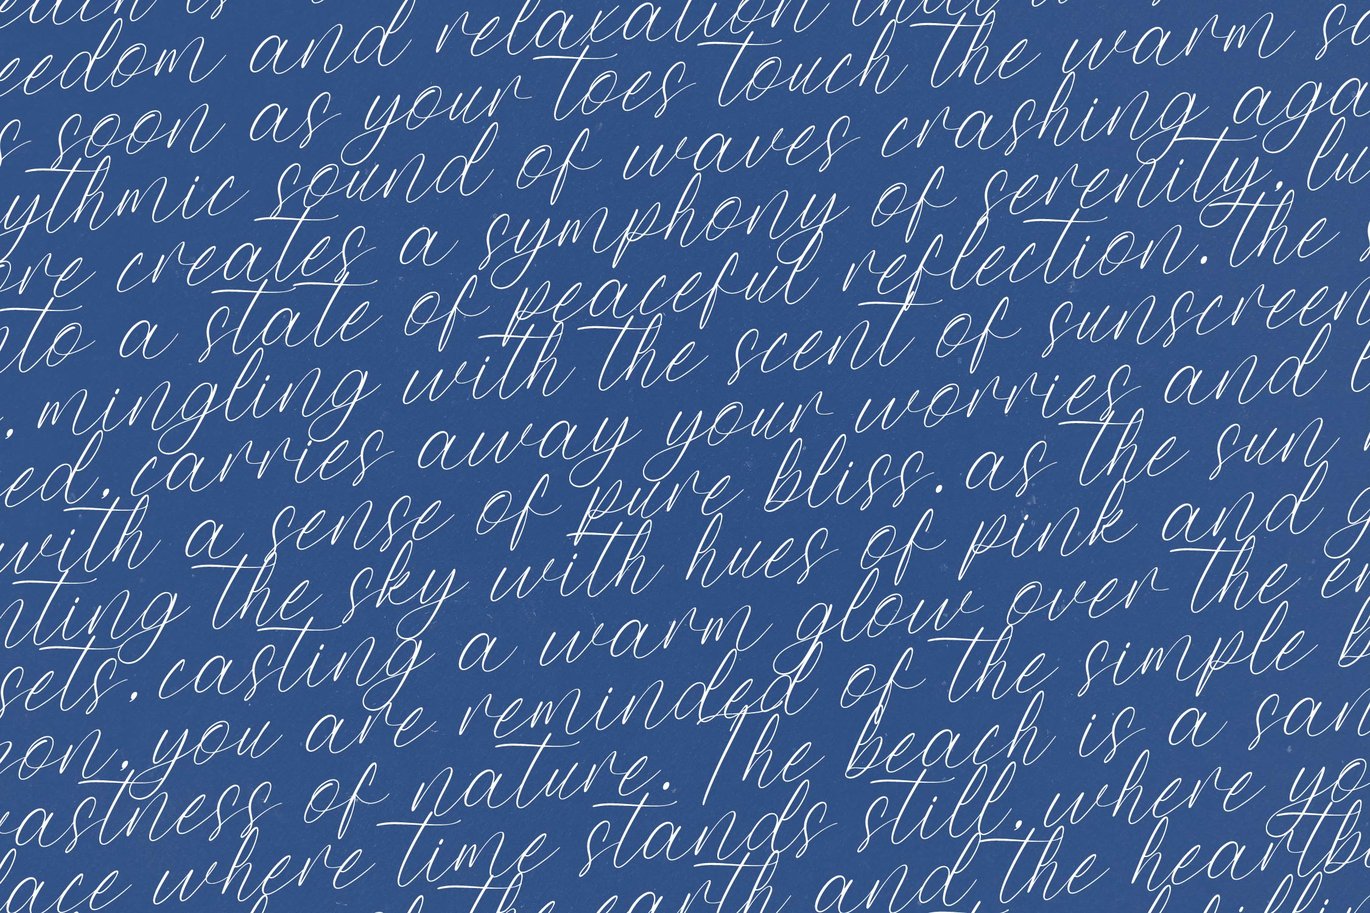 each is
eedom and relaxation that
s soon as your toes touch the warm s
ythmic sound of waves crashing aga
ore creates a symphony of serenity, lu
nto a state of peaceful reflection. the
, mingling with the scent of sunscreen
ed, carries away your worries and
with a sense of pure bliss. as the sun
nting the sky with hues of pink and g
sets, casting a warm glow over the en
on, you are reminded of the simple b
astness of nature. The beach is a san
lace where time stands still, where yo
the earth and the heartb